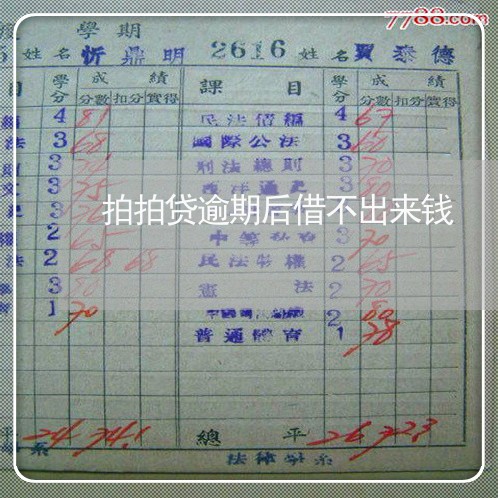 7788.com
學期
姓名 忻鼎明 2616 姓名 賈泰德
目 學分 成績 分數 扣分 實得 課目 學分 成績 分數 扣分 實得
4 81 民法債編 4 67
法 3 68 國際公法 3 60
3 刑法總則 3 70
文 3 75 西洋通史 3 80
拍拍贷逾期后借不出来钱
2 65 3 70
法 2 68 68 民法物權 2 65
3 80 憲法 2 70
1 70 2 80
普通體育 1 78
平 24 74.1 總平 26 72.3
系 法律學系